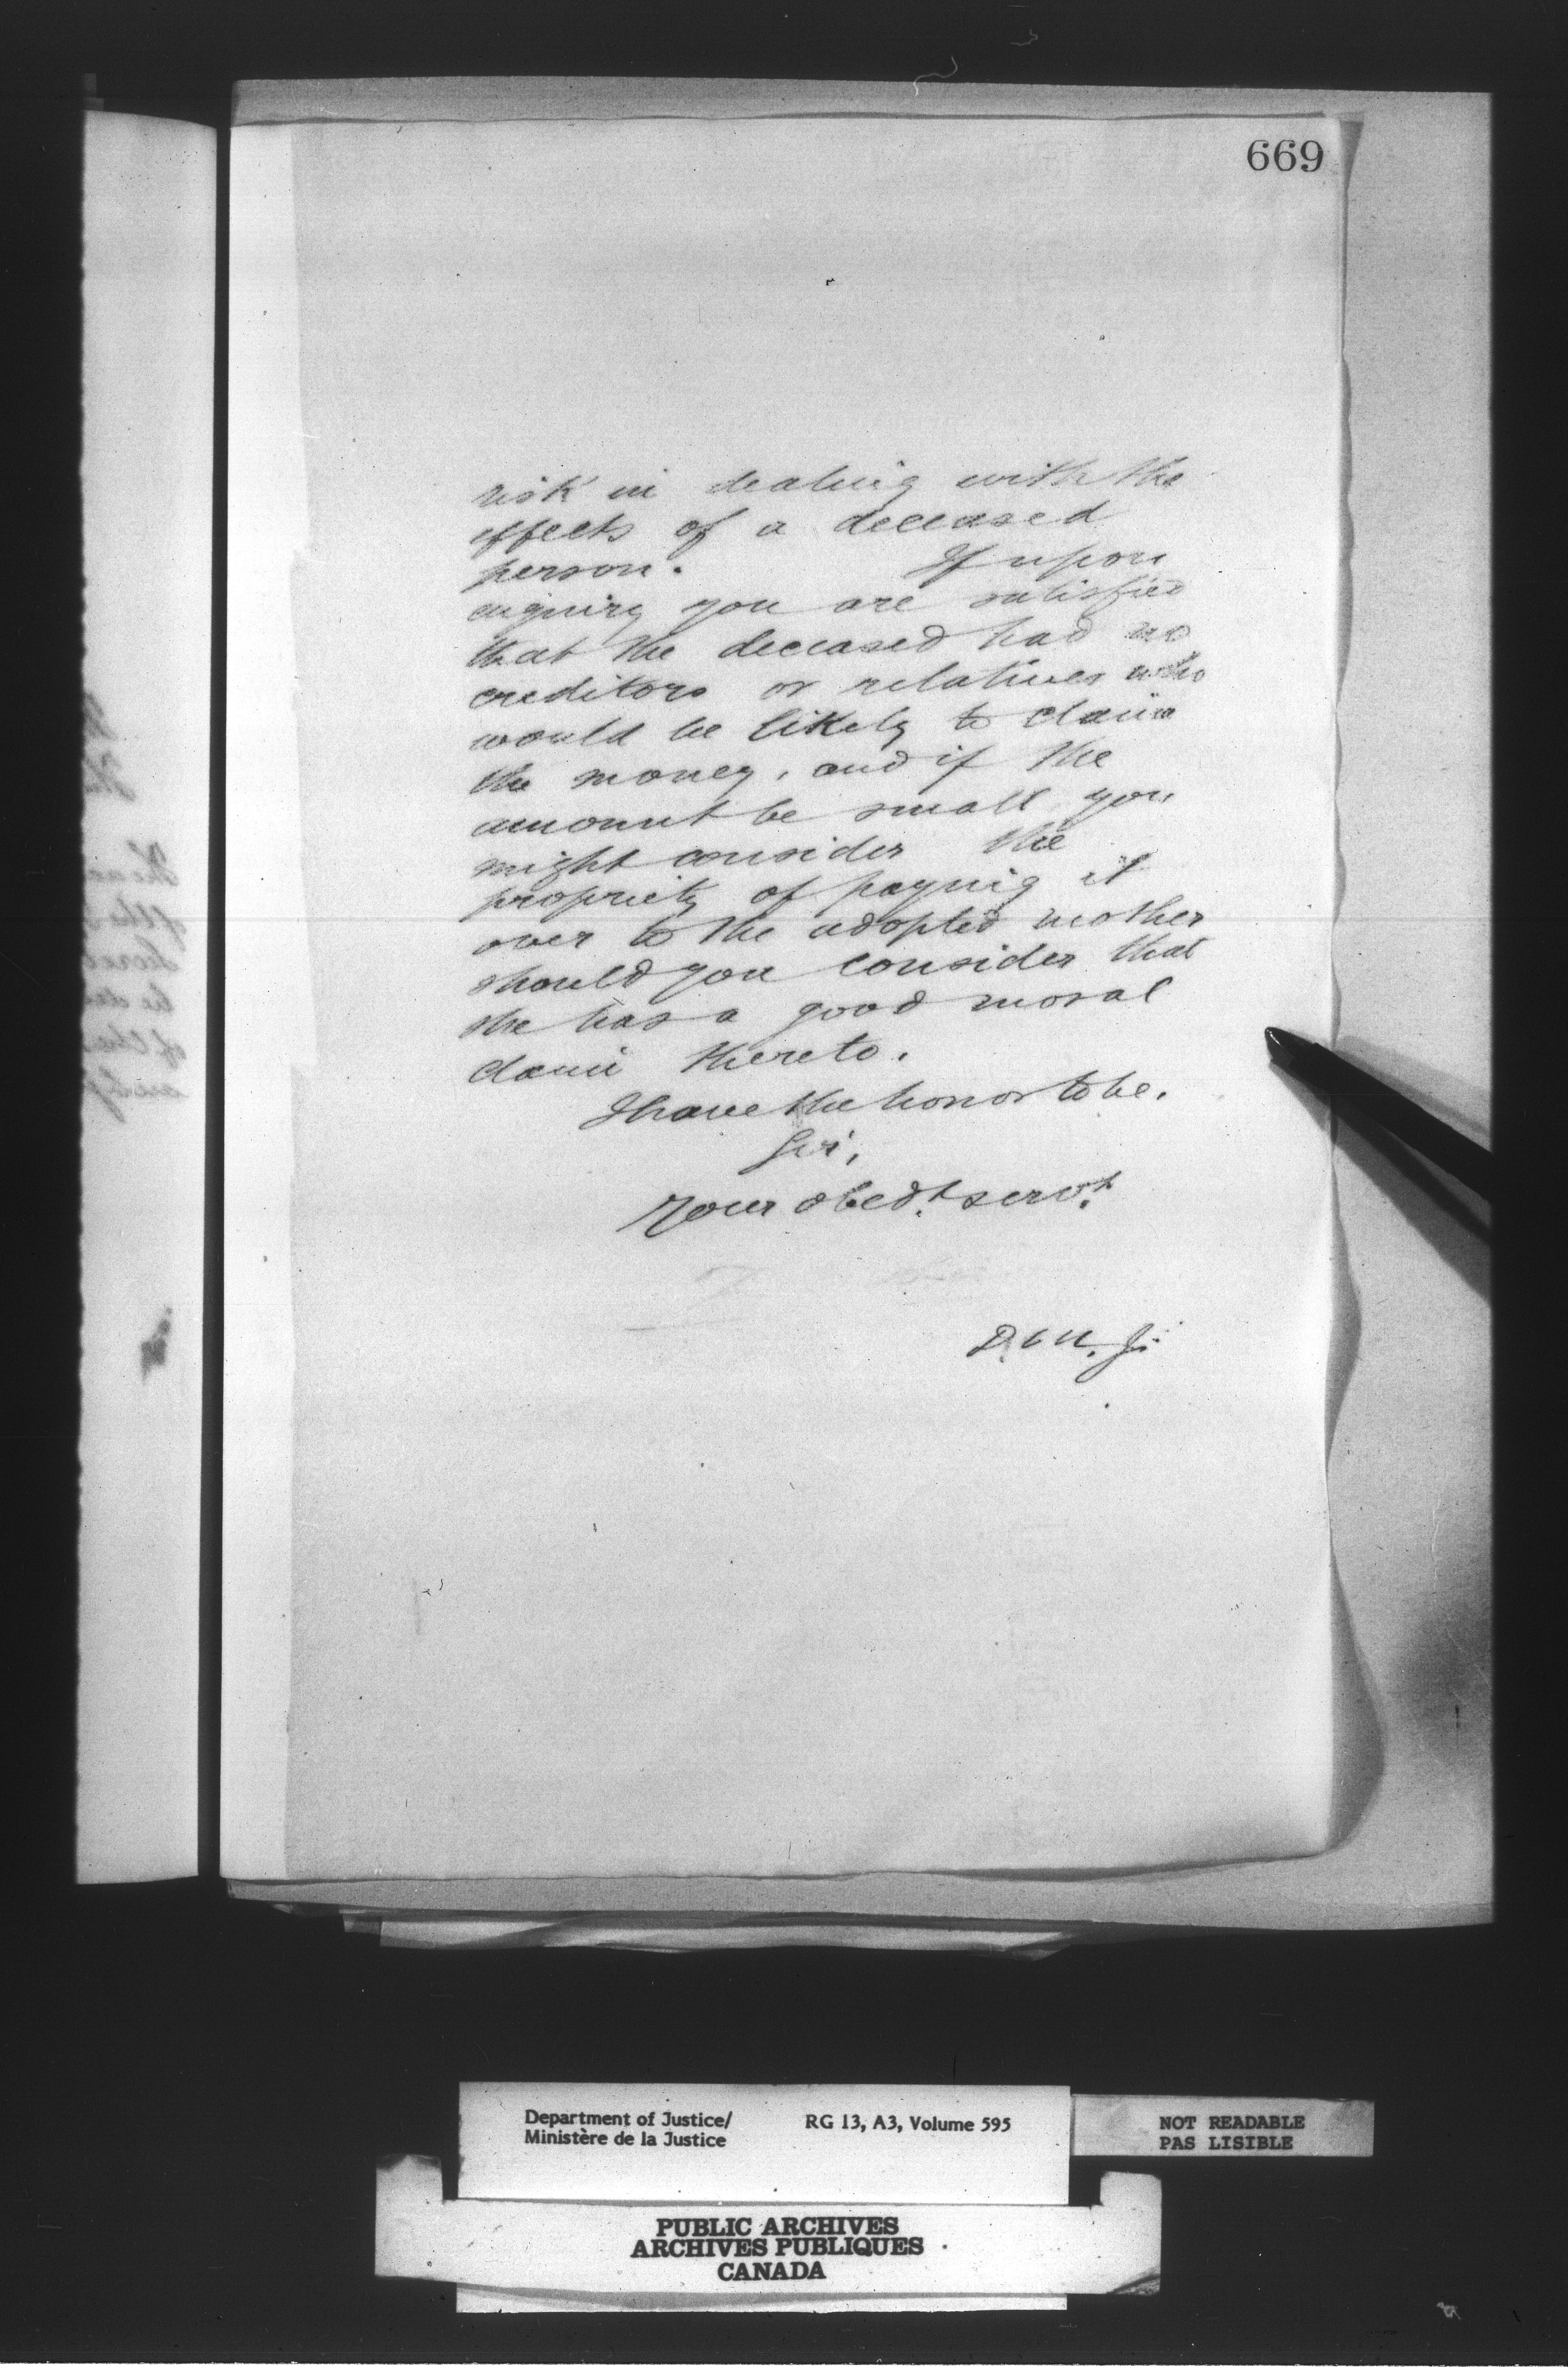 669
risk in dealing with the
effects of a deceased
person. If upon
enquiry you are satisfied
that the deceased had no
creditors or relatives who
would be likely to claim
the money, and if the
amount be small you
might consider the
propriety of paying it
over to the adopted mother
should you consider that
she has a good moral
claim thereto.
I have the honor to be,
Sir,
Your obedt. servt.
Department of Justice/
Ministère de la Justice
RG 13, A3, Volume 595
NOT READABLE
PAS LISIBLE
PUBLIC ARCHIVES
ARCHIVES PUBLIQUES
CANADA